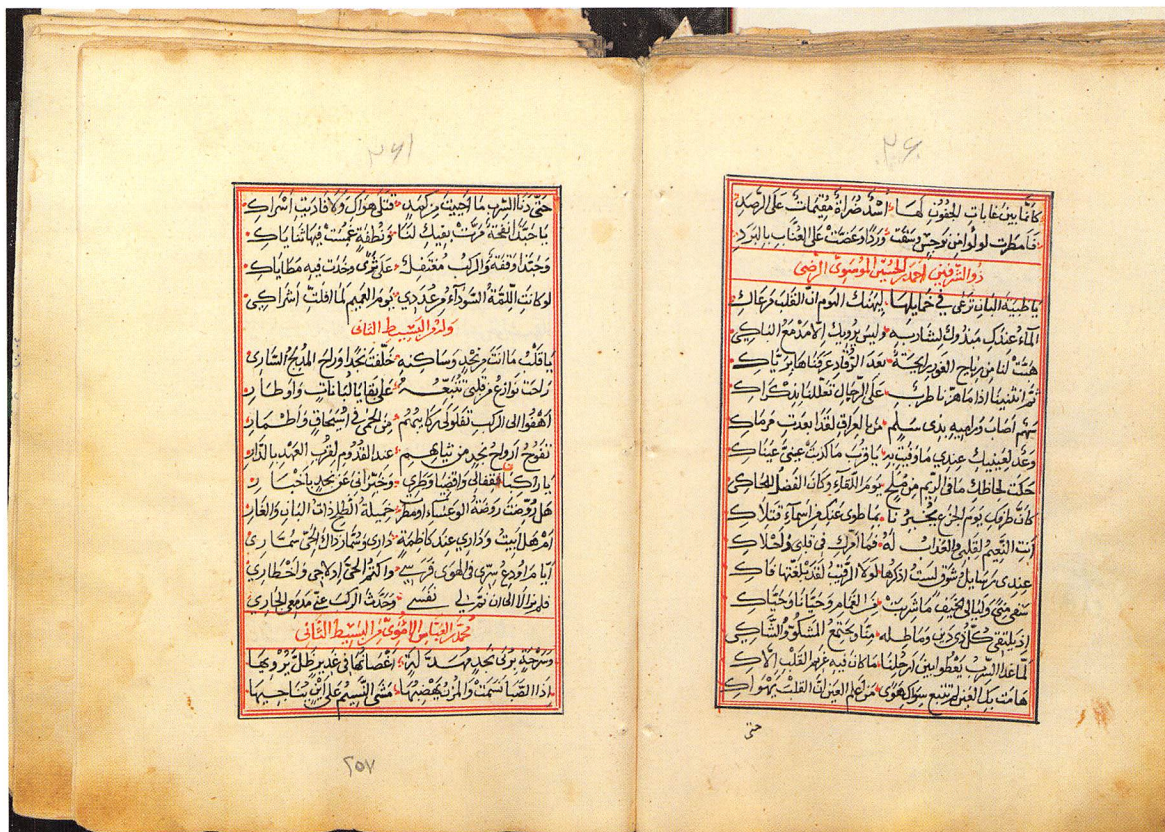 ٢٦٠
كأنما بين غابات الجفون لها أسد ضراة مقيمات على الرصد
فأمطرت لولوا من نرجس وسقت وردا وعضت على العناب بالبرد
ذو الشرفين احمد بن الحسين الموسوي الرضي
يا ظبية البان ترعى في خمايلها ليهنك اليوم ان القلب مرعاك
الماء عندك مبذول لشاربه وليس يرويك الا مدمع الباكي
هبت لنا من رياح الغور رايحة بعد الرقاد عرفناها برياك
ثم انثنينا اذا ما هزنا طرب على الرحال تعللنا بذكراك
سهم أصاب وراميه بذي سلم من بالعراق لقد ابعدت مرماك
وعد لعينيك عندي ما وفيت به يا قرب ما كذبت عيني عيناك
حكت لحاظك ما في الريم من ملح يوم اللقاء وكان الفضل للحاكي
كأن طرفك يوم الجزع يخبرنا بما طوى عنك من اسماء قتلاك
أنت النعيم لقلبي والعذاب له فما امرك في قلبي واحلاك
عندي رسايل شوق لست اذكرها لولا الرقيب لقد بلغتها فاك
سقى منى وليالي الخيف ما شربت من الغمام وحيانا وحياك
اذ يلتقي كل ذي دين وماطله منا ويجتمع المشكو والشاكي
لما غدا السرب يعطو بين ارحلنا ما كان فيه غريم القلب الاك
هامت بك العين لم تتبع سواك هوى من اعلم العين ان القلب يهواك
حتى
٢٦١
حتى دنا السرب ما احييت من كمد قتلى هواك ولا فاديت اسراك
يا حبذا نفحة مرت بفيك لنا ونطفة غمست فيها ثناياك
وحبذا وقفة والركب مغتفل على ثرى وخدت فيه مطاياك
لو كانت اللمة السوداء من عددي يوم الغميم لما افلت اشراكي
وله من البسيط الثاني
يا قلب ما انت من نجد وساكنه خلفت نجدا وراء المدلج الساري
راحت نوازع من قلبي تتبعه على بقايا لبانات واوطار
اهفوا الى الركب تعلو لي ركابهم من الحمى في اسيحاق واطمار
تفوح ارواح نجد من ثيابهم عند القدوم لقرب العهد بالدار
يا راكبان قفا لي واقضيا وطري وخبراني عن نجد باخبار
هل روضت روضة الوعساء او مطرت خميلة الطلح ذات البان والغار
ام هل ابيت وداري عند كاظمة داري وسمار ذاك الحي سماري
ايام اودع سري في الهوى فرسي واكتم الحي ادلاجي واخطاري
فلم يزالا الى ان نم بي نفسي وحدث الركب عني مدمعي الجاري
محمد بن العباس الاموي من البسيط الثاني
وسرحة بربى نجد مهدلة اغصانها في غدير ظل يرويها
اذا الصبا نسمت والمزن يهضبها مشى النسيم على اين يناجيها
٢٥٧